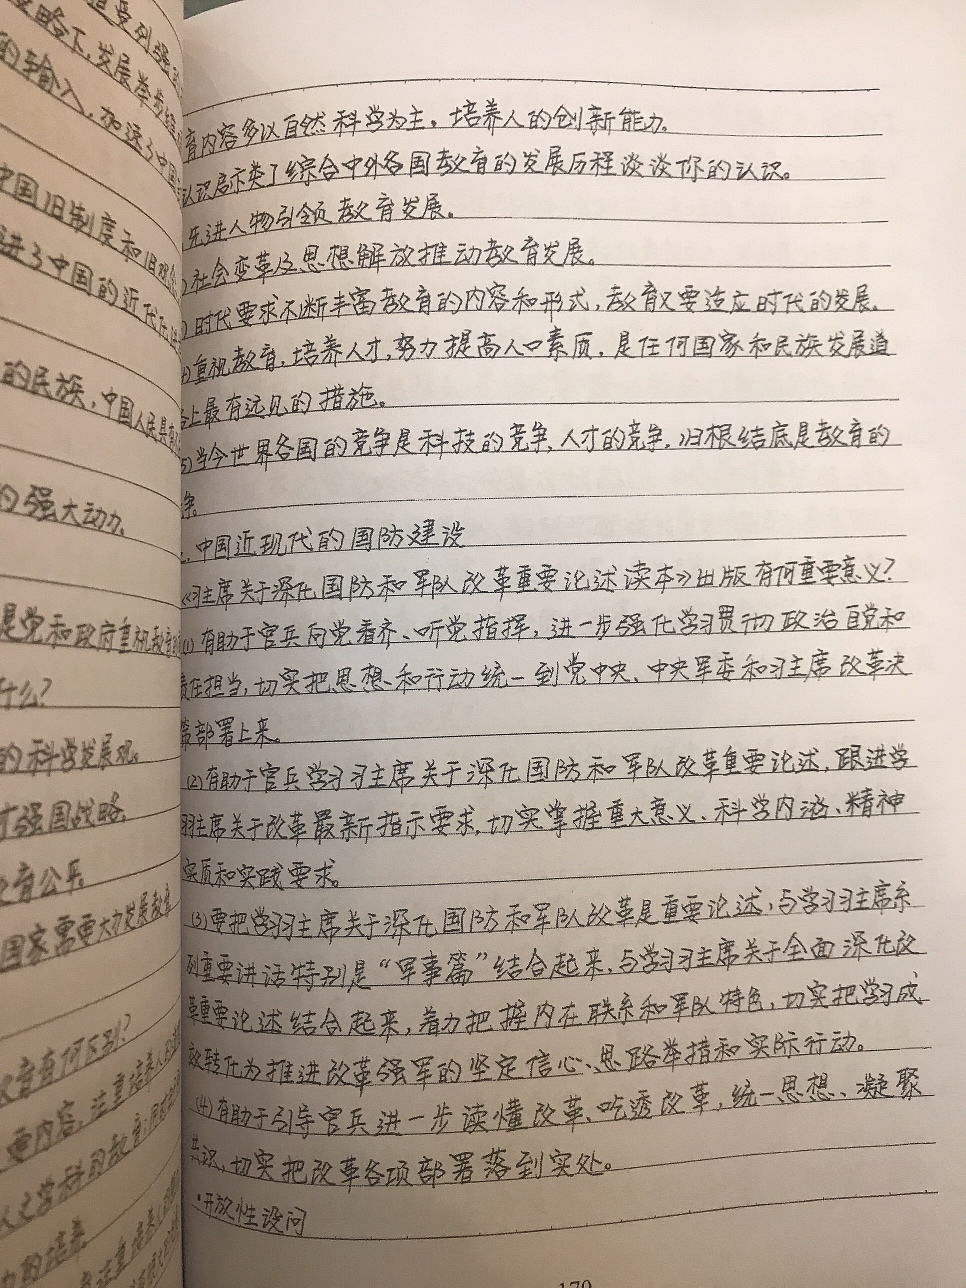 道受列强
略下,发展举步维
的输入,加速了中国
中国旧制度和旧观念
进了中国的近代化
的民族,中国人民具有
的强大动力。
是党和政府重视教育
什么?
的科学发展观。
才强国战略。
教育公平。
国家需要大力发展教育
教育有何区别?
要内容,注重培养人
人文学科的教育
力的培养
育内容多以自然科学为主。培养人的创新能力。
认识启示类了综合中外各国教育的发展历程谈谈你的认识。
先进人物引领教育发展。
)社会变革及思想解放推动教育发展。
)时代要求不断丰富教育的内容和形式,教育又要适应时代的发展。
4)重视教育,培养人才,努力提高人口素质,是任何国家和民族发展道
路上最有远见的措施。
5)当今世界各国的竞争是科技的竞争,人才的竞争,归根结底是教育的
争。
、中国近现代的国防建设
《习主席关于深化国防和军队改革重要论述读本》出版有何重要意义?
(1)有助于官兵向党看齐、听党指挥,进一步强化学习贯彻政治自觉和
责任担当,切实把思想和行动统一到党中央、中央军委和习主席改革决
策部署上来。
(2)有助于官兵学习习主席关于深化国防和军队改革重要论述,跟进学
习习主席关于改革最新指示要求,切实掌握重大意义、科学内涵、精神
实质和实践要求。
(3)要把学习习主席关于深化国防和军队改革是重要论述,与学习习主席系
列重要讲话特别是“军事篇”结合起来,与学习习主席关于全面深化改
革重要论述结合起来,着力把握内在联系和军队特色,切实把学习成
效转化为推进改革强军的坚定信心、思路举措和实际行动。
(4)有助于引导官兵进一步读懂改革、吃透改革,统一思想、凝聚
共识,切实把改革各项部署落到实处。
·开放性设问
170